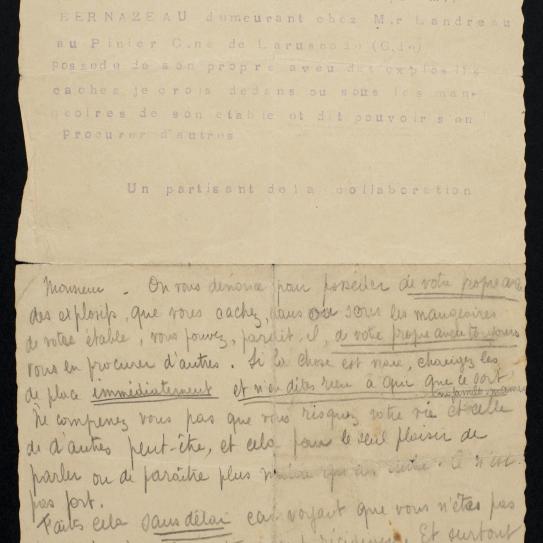 BERNAZEAU demeurant chez M.r Landreau
au Pinier C.ne de Laruscade (G.de)
Possede de son propre aveu des explosifs
caches je crois dedans ou sous les man-
geoires de son etable et dit pouvoir s'en
Procurer d'autres
Un partisant de la collaboration
Monsieur - On vous dénonce pour posséder de votre propre aveu
des explosifs, que vous cachez, dans ou sous les mangeoires
de votre étable, vous pouvez, paraît-il, de votre propre aveu toujours
vous en procurer d'autres. Si la chose est vraie, changez les
de place immédiatement et n'en dites rien à qui que ce soit
Ne comprenez vous pas que vous risquez votre vie et celle
de d'autres peut-être, et cela pour le seul plaisir de
parler ou de paraître plus que c'est
pas fort.
Faites cela sans délai car voyant que vous n'êtes pas
Et surtout